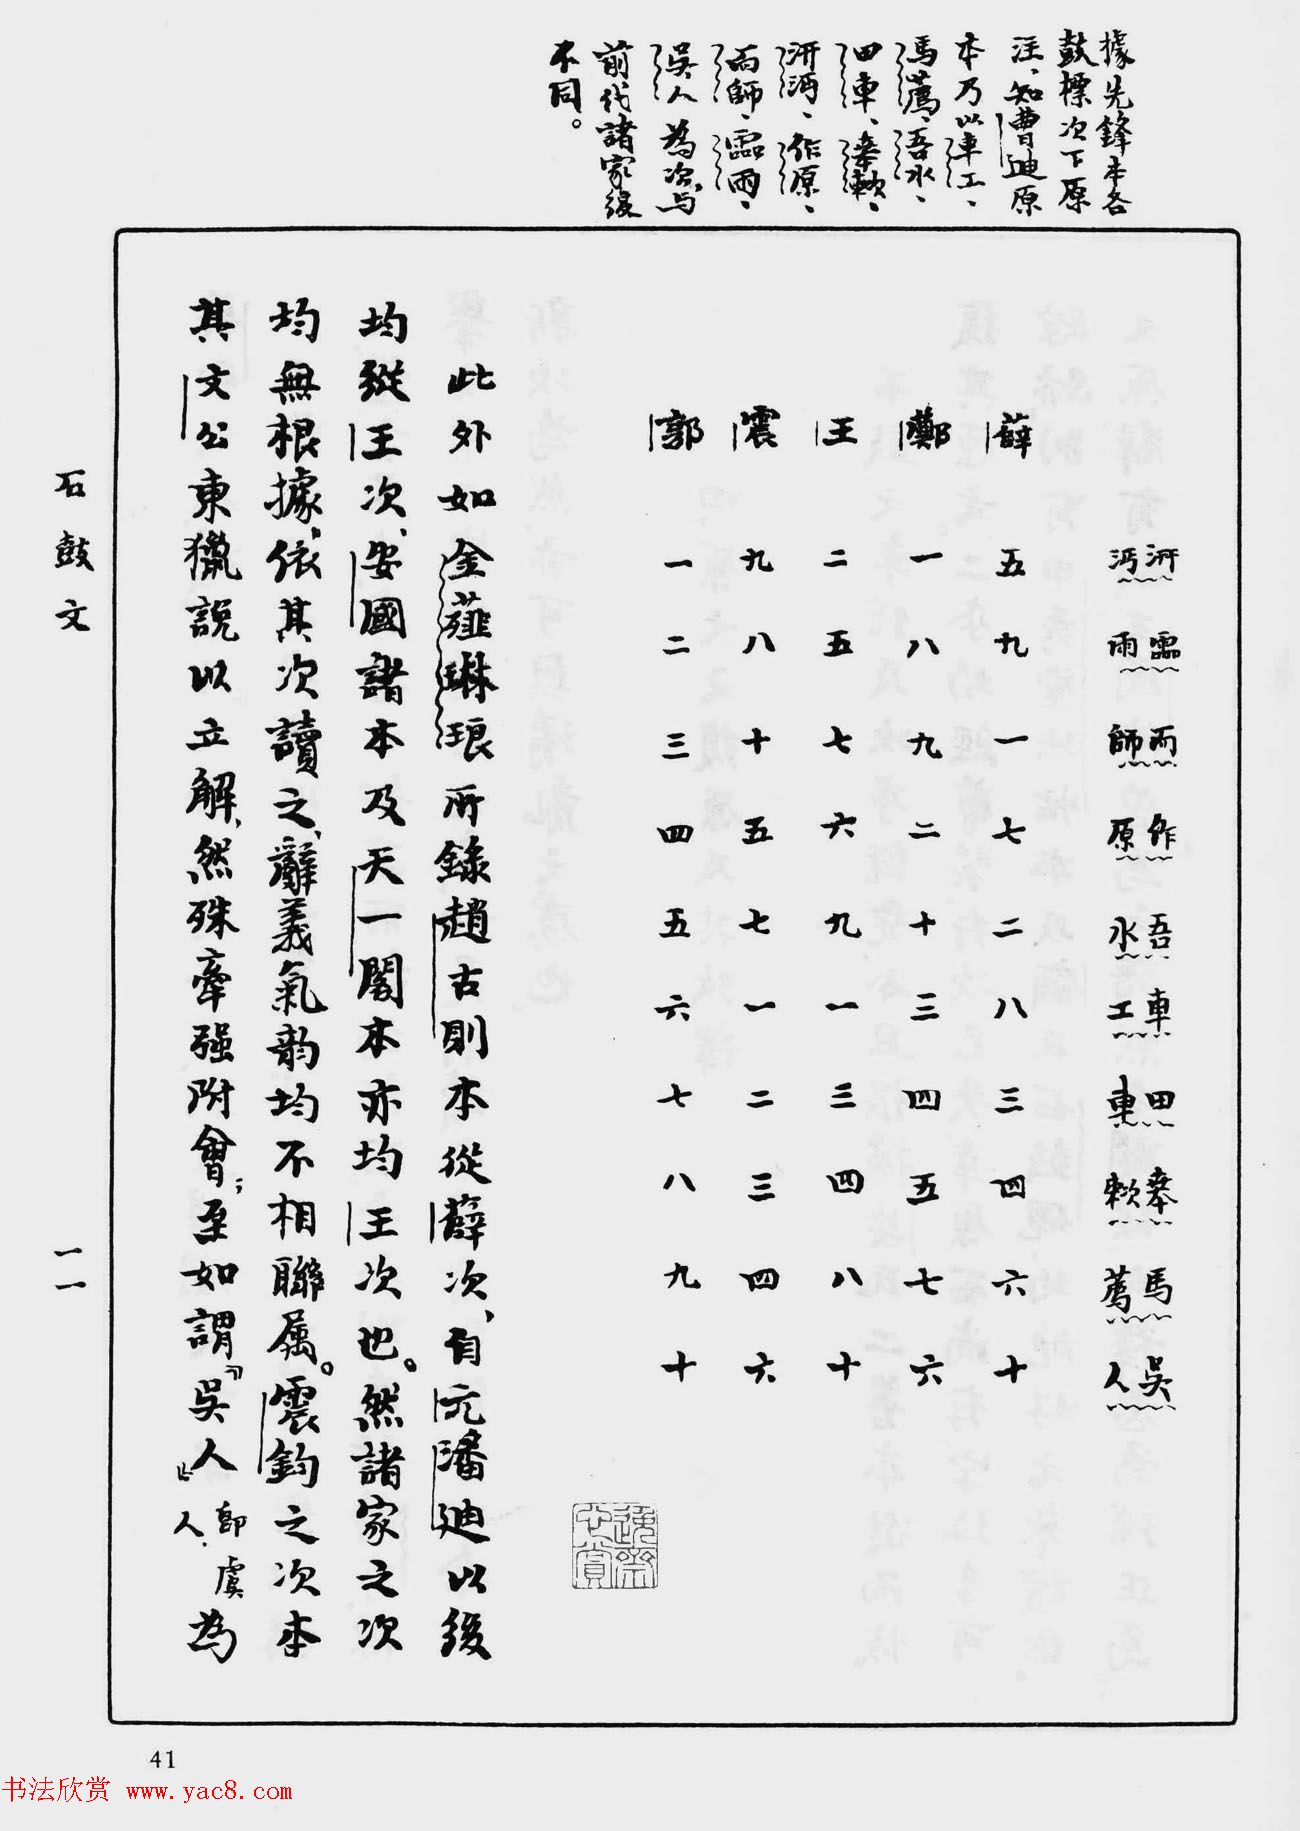 據先鋒本各
鼓標次下原
注、知曹迪原
本乃以車工、
馬薦、吾水、
田車、𠦪敕、
汧沔、作原、
而師、霝雨、
吳人為次、与
前代諸家緩
不同。
汧沔 霝雨 而師 作原 吾水 車工 田車 𠦪敕 馬薦 吳人
薛 五 九 一 七 二 八 三 四 六 十
鄭 一 八 九 二 十 三 四 五 七 六
王 二 五 七 六 九 一 三 四 八 十
震 九 八 十 五 七 一 二 三 四 六
郭 一 二 三 四 五 六 七 八 九 十
此外如金薤琳琅所錄趙古則本從薛次、自元潘迪以後
均從王次、安國諸本及天一閣本亦均王次也。然諸家之次
均無根據，依其次讀之、辭義氣韵均不相聯属。震鈞之次本
其文公東獵說以立解、然殊牽强附會；至如謂「吳人」即虞人、為
石鼓文
一一
41
书法欣赏 www.yac8.com